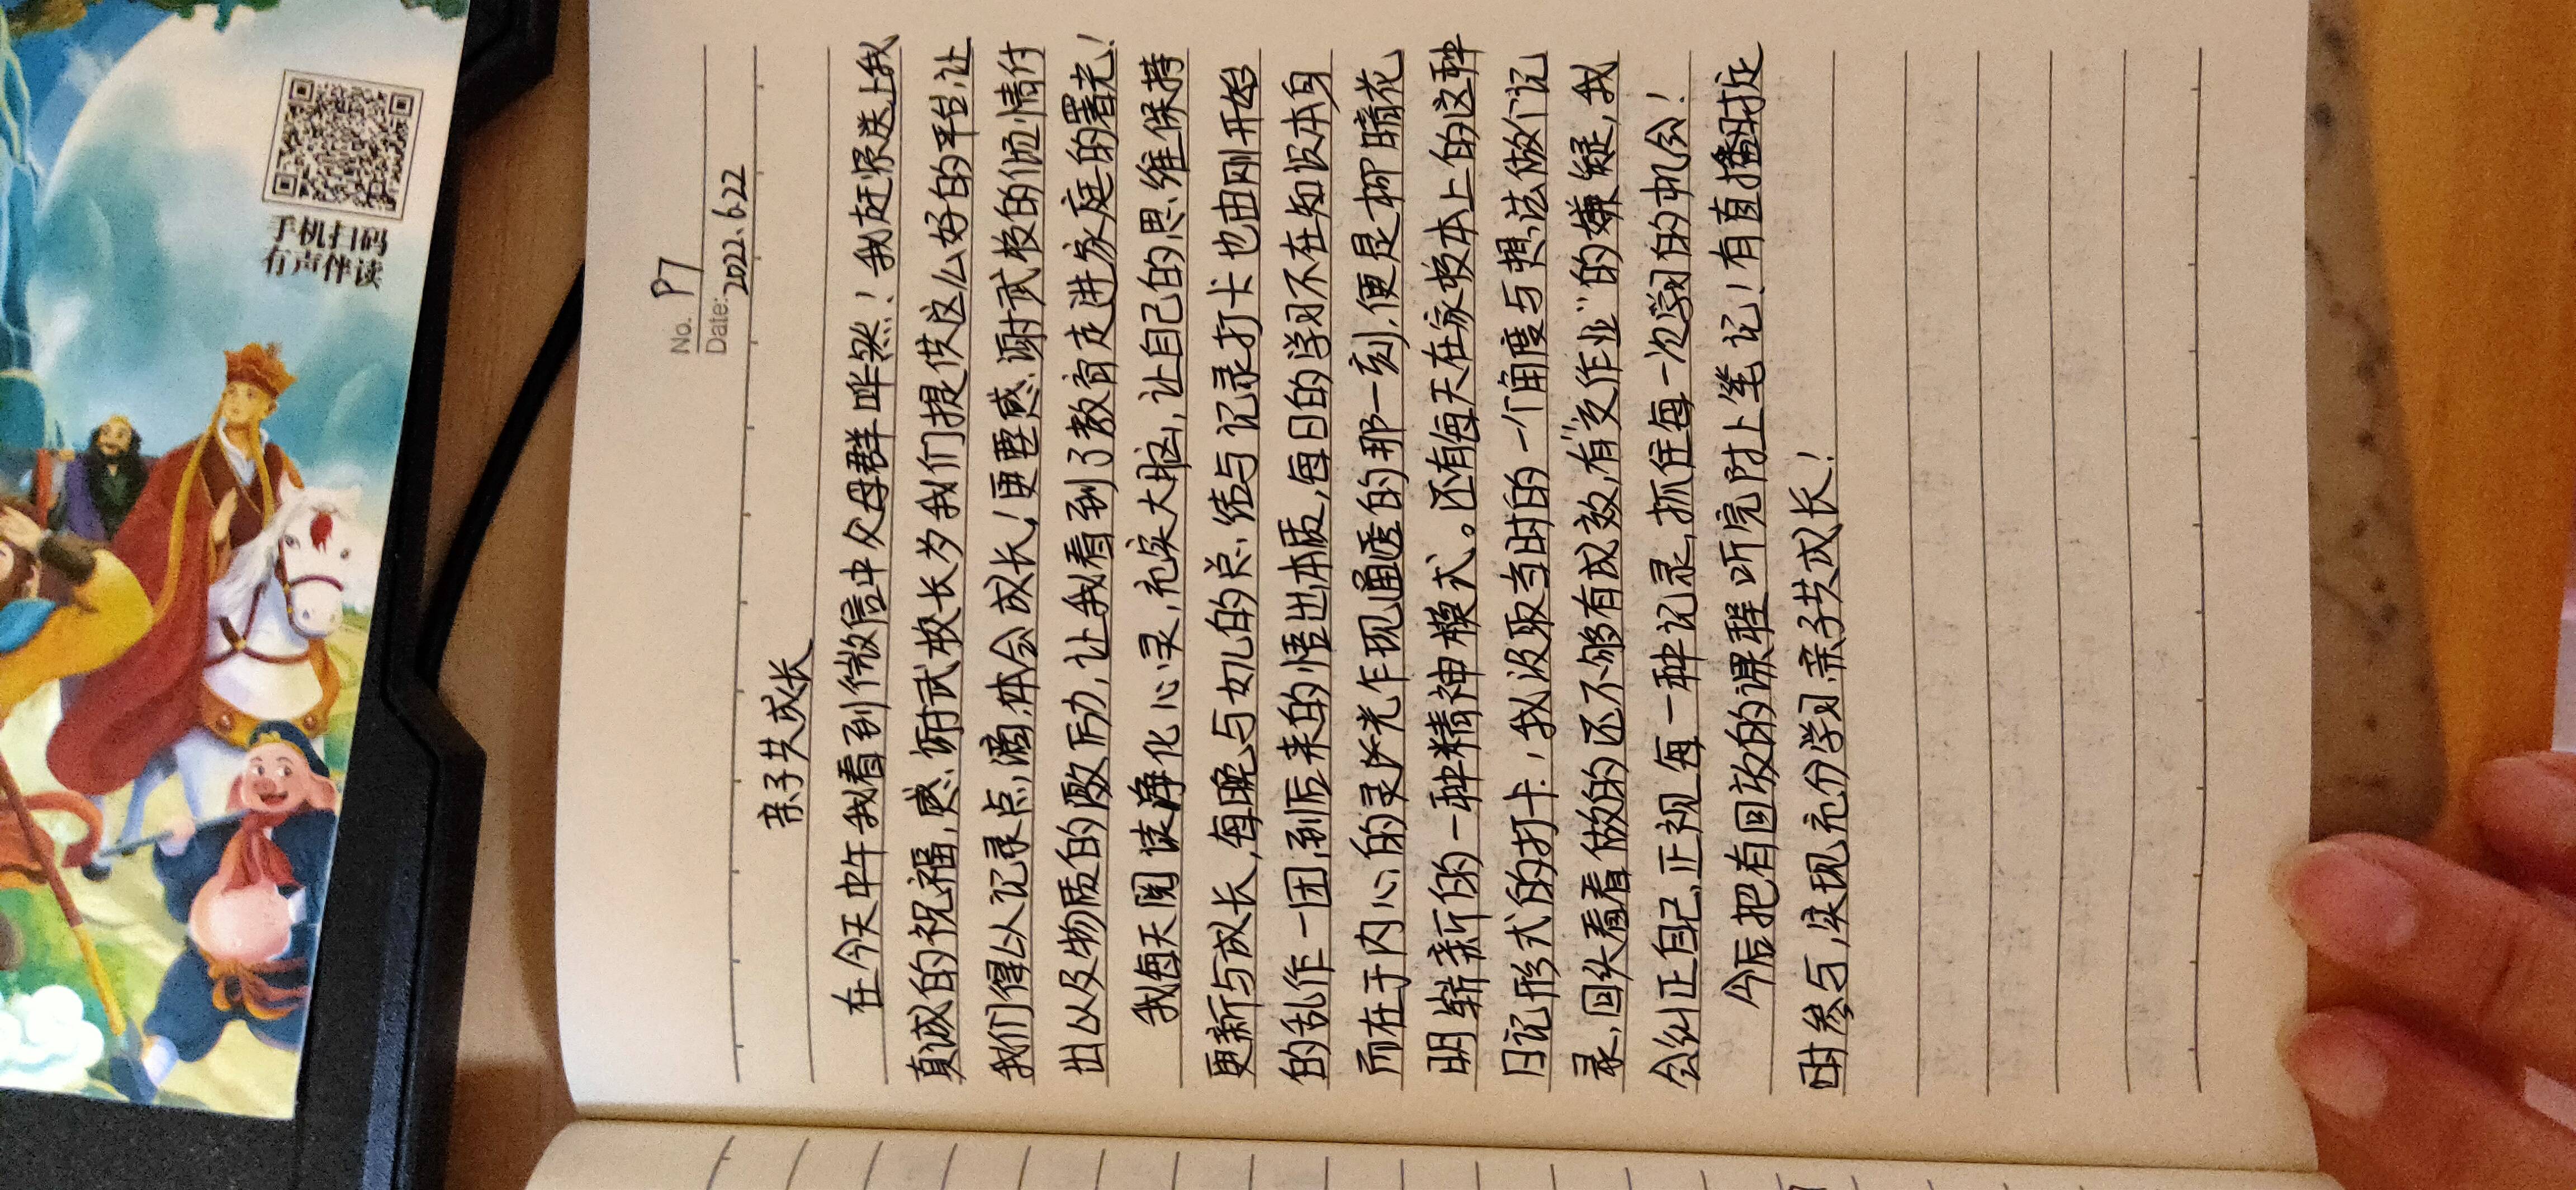 手机扫码
有声伴读
No. P7
Date: 2022.6.22
亲子共成长
在今天中午我看到微信中父母群哗然！我赶紧送上我
真诚的祝福,感谢武校长为我们提供这么好的平台,让
我们得以记录点滴,体会成长！更要感谢武校的倾情付
出以及物质的激励,让我看到了教育走进家庭的署光！
我每天阅读净化心灵,充实大脑,让自己的思维保持
更新与成长,每晚与女儿的总结与记录打卡也由刚开始
的乱作一团,到后来的悟出本质,每日的学习不在知识本身
而在于内心的灵光乍现通透的那一刻,便是柳暗花
明崭新的一种精神模式。还有每天在家校本上的这种
日记形式的打卡,我汲取当时的一个角度与想法做个记
录,回头看看做的还不够有成效,有“交作业”的嫌疑,我
会纠正自己,正视每一种记录,抓住每一次学习的机会！
今后把有回放的课程听完附上笔记！有直播时按
时参与,实现充份学习,亲子共成长！